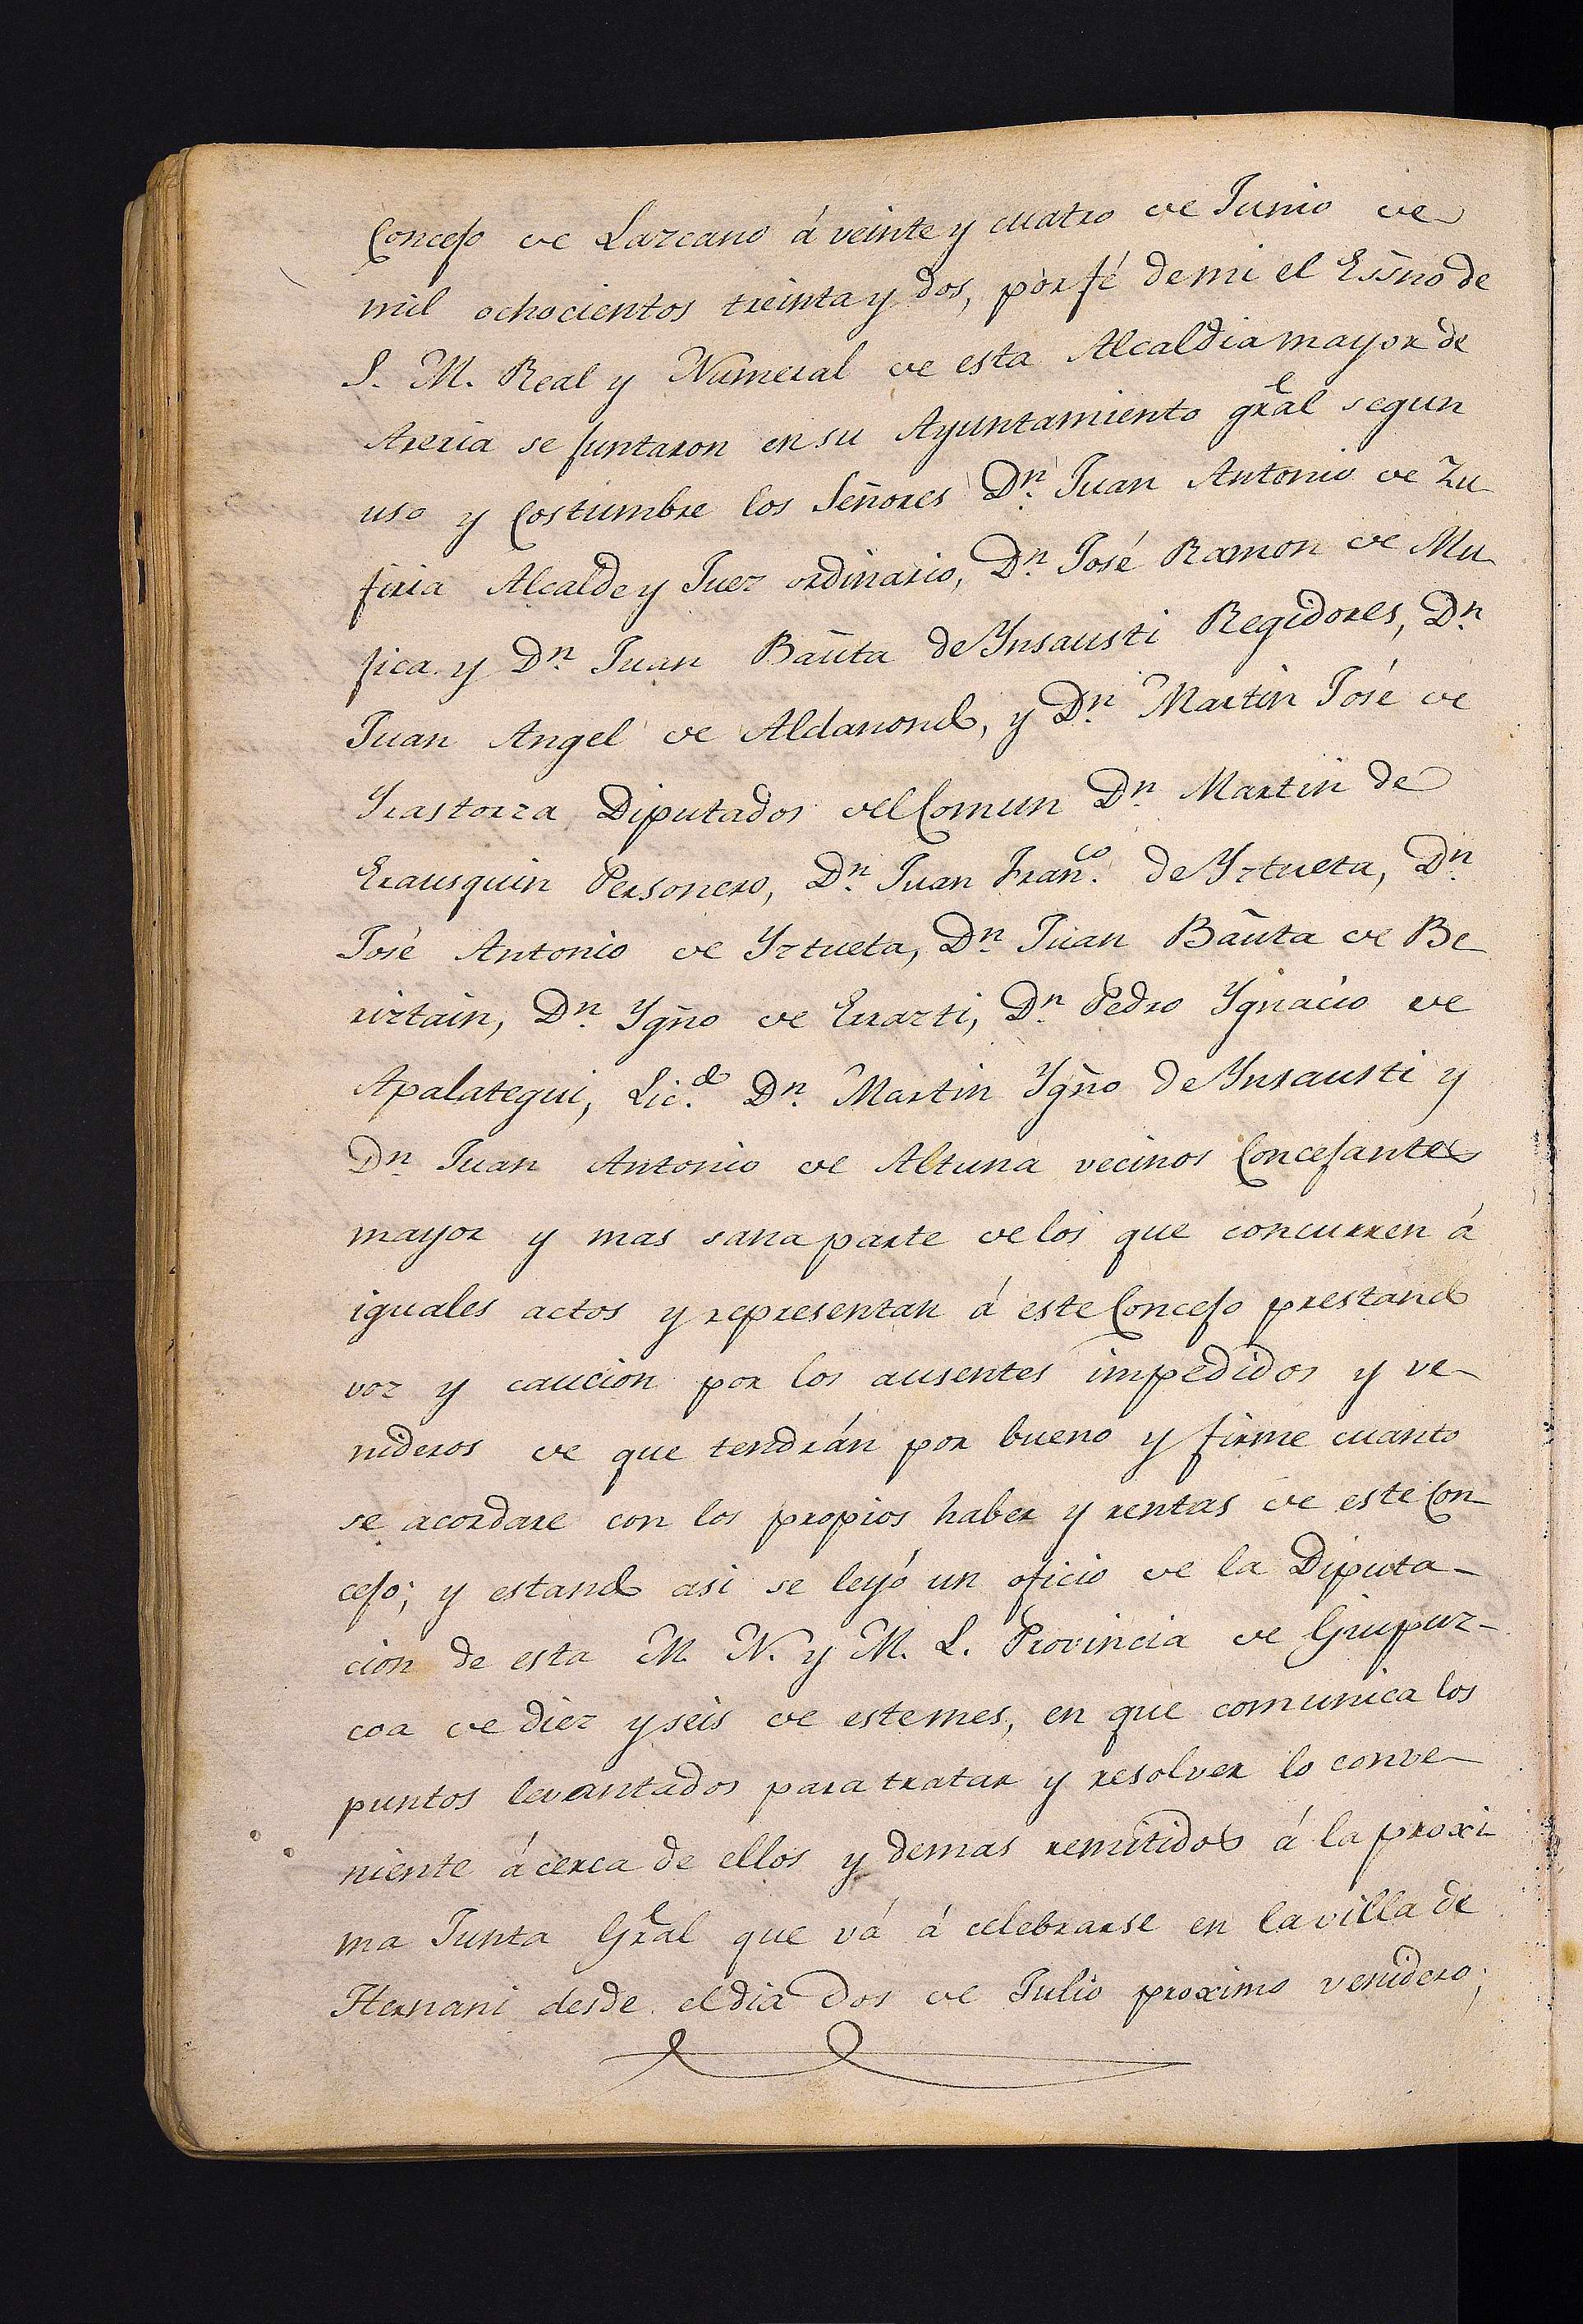 Concejo de Lazcano á veinte y cuatro de Junio de
mil ochocientos treinta y dos, por fé de mi el Essño de
S. M. Real y Numeral de esta Alcaldia mayor de
Areria se juntaron en su Ayuntamiento gral segun
uso y Costumbre los Señores Dn. Juan Antonio de Zu
firia Alcalde y Juez ordinario, Dn. José Ramon de Mu
jica y Dn. Juan Bauta de Ynsausti Regidores, Dn.
Juan Angel de Aldanondo, y Dn. Martin José de
Yrastorza Diputados del Comun Dn. Martin de
Erausquin Personero, Dn. Juan Franco. de Yztueta, Dn.
José Antonio de Yztueta, Dn. Juan Bauta de Be
riztain, Dn. Ygño de Errazti, Dn. Pedro Ygnacio de
Apalategui, Licdo. Dn. Martin Ygño de Ynsausti y
Dn. Juan Antonio de Altuna vecinos Concejantes
mayor y mas sana parte de los que concurren á
iguales actos y representan á este Concejo prestando
voz y caucion por los ausentes impedidos y ve-
nideros de que tendrán por bueno y firme cuanto
se acordare con los propios haber y rentas de este Con
cejo; y estando asi se leyó un oficio de la Diputa-
cion de esta M. N. y M. L. Provincia de Guipuz-
coa de diez y seis de este mes, en que comunica los
puntos levantados para tratar y resolver lo conve-
niente ácerca de ellos y demas remitidos á la proxi
ma Junta Gral que vá á celebrarse en la villa de
Hernani desde el dia Dos de Julio proximo venidero;